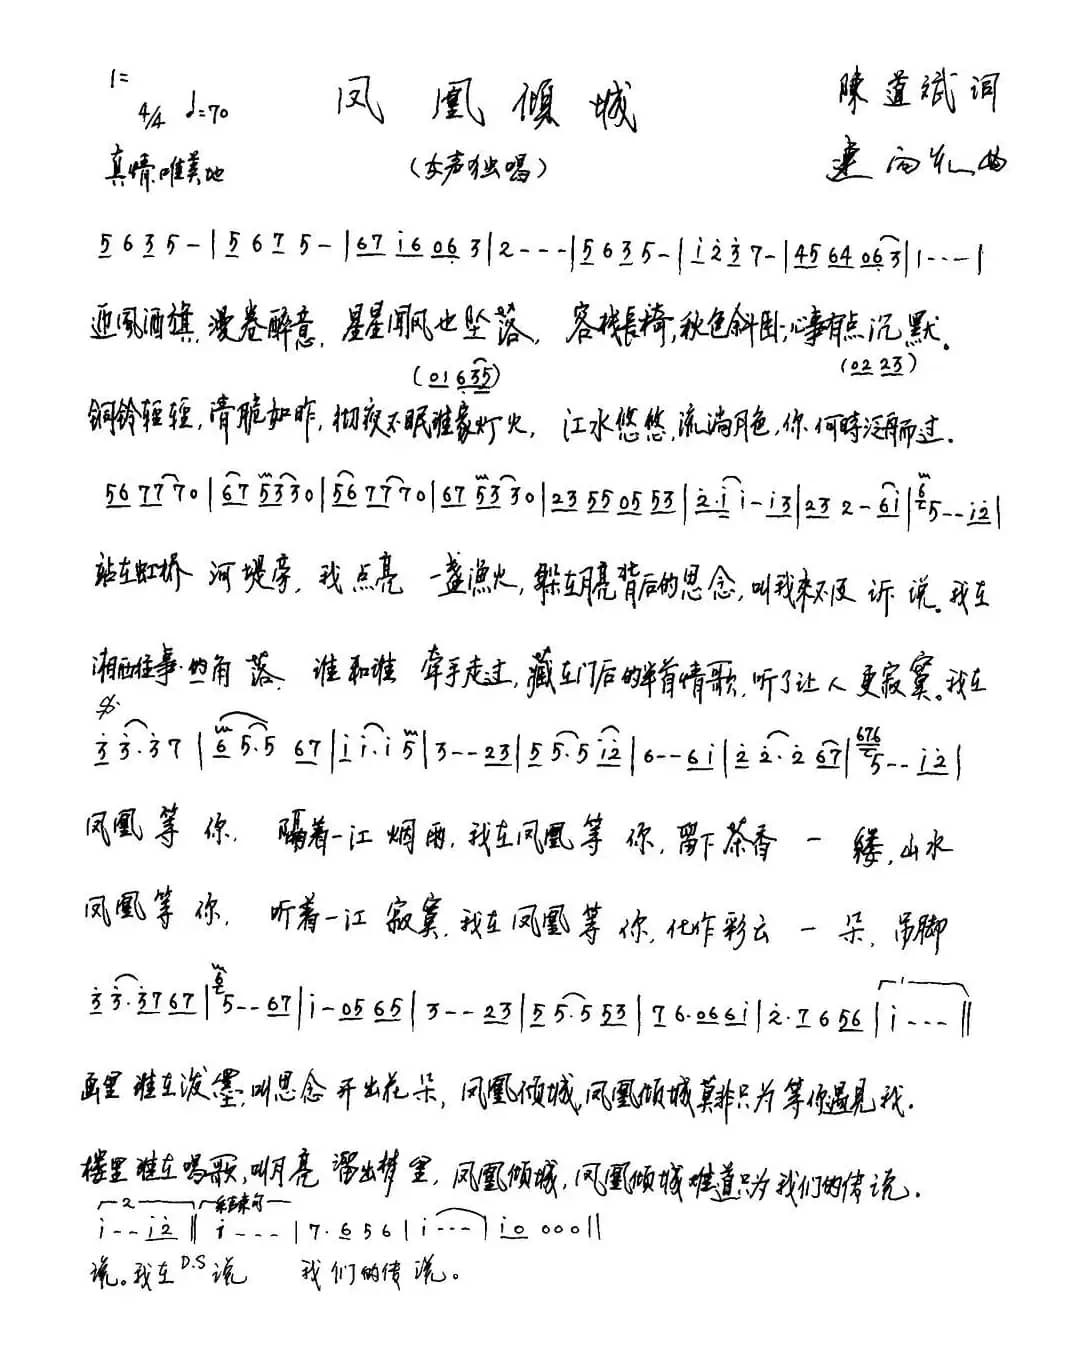 1=
4/4 ♩=70
凤凰倾城
陳道斌 词
真情唯美地
(女声独唱)
曲
5 6 3 5 - | 5 6 7 5 - | 67 i6 06 3 | 2 - - - | 5 6 3 5 - | i 2 3 7 - | 45 64 06 3 | 1 - - - |
迎风酒旗,漫卷醉意,星星闻风也坠落,客栈長椅,秋色斜卧,心事有点沉默。
(01 635) (02 23)
铜铃轻轻,清脆如昨,彻夜不眠谁家灯火,江水悠悠,流淌月色,你何時泛舟而过.
56 77 70 | 67 53 30 | 56 77 70 | 67 53 30 | 23 55 05 53 | 2·i i - i3 | 23 2 - 6i | 6 5 - - i2 |
站在虹桥 河堤旁,我点亮 一盏漁火,躲在月亮背后的思念,叫我来不及 诉说。我在
湘西往事的角落,谁和谁 牵手走过,藏在门后的半首情歌,听了让人更寂寞。我在
3 3·3 7 | 6 5·5 67 | i i·i 5 | 3 - - 23 | 5 5·5 i2 | 6 - - 6i | 2 2·2 67 | 676 5 - - i2 |
凤凰等你,隔着一江烟雨,我在凤凰等你,留下茶香一缕,山水
凤凰等你,听着一江寂寞,我在凤凰等你,化作彩云一朵,吊脚
3 3·37 67 | 6 5 - - 67 | i - 05 65 | 3 - - 23 | 5 5·5 53 | 7 6·06 6i | 2·7 6 56 | 1 i - - - ‖
画里谁在泼墨,叫思念开出花朵,凤凰倾城,凤凰倾城莫非只为等你遇見我.
楼里谁在唱歌,叫月亮溜出梦里,凤凰倾城,凤凰倾城难道只为我们的传说.
2 结束句
i - - i2 ‖ i - - - | 7·6 5 6 | i - - - | i0 0 0 0 ‖
说。我在 D.S 说 我们的传说。